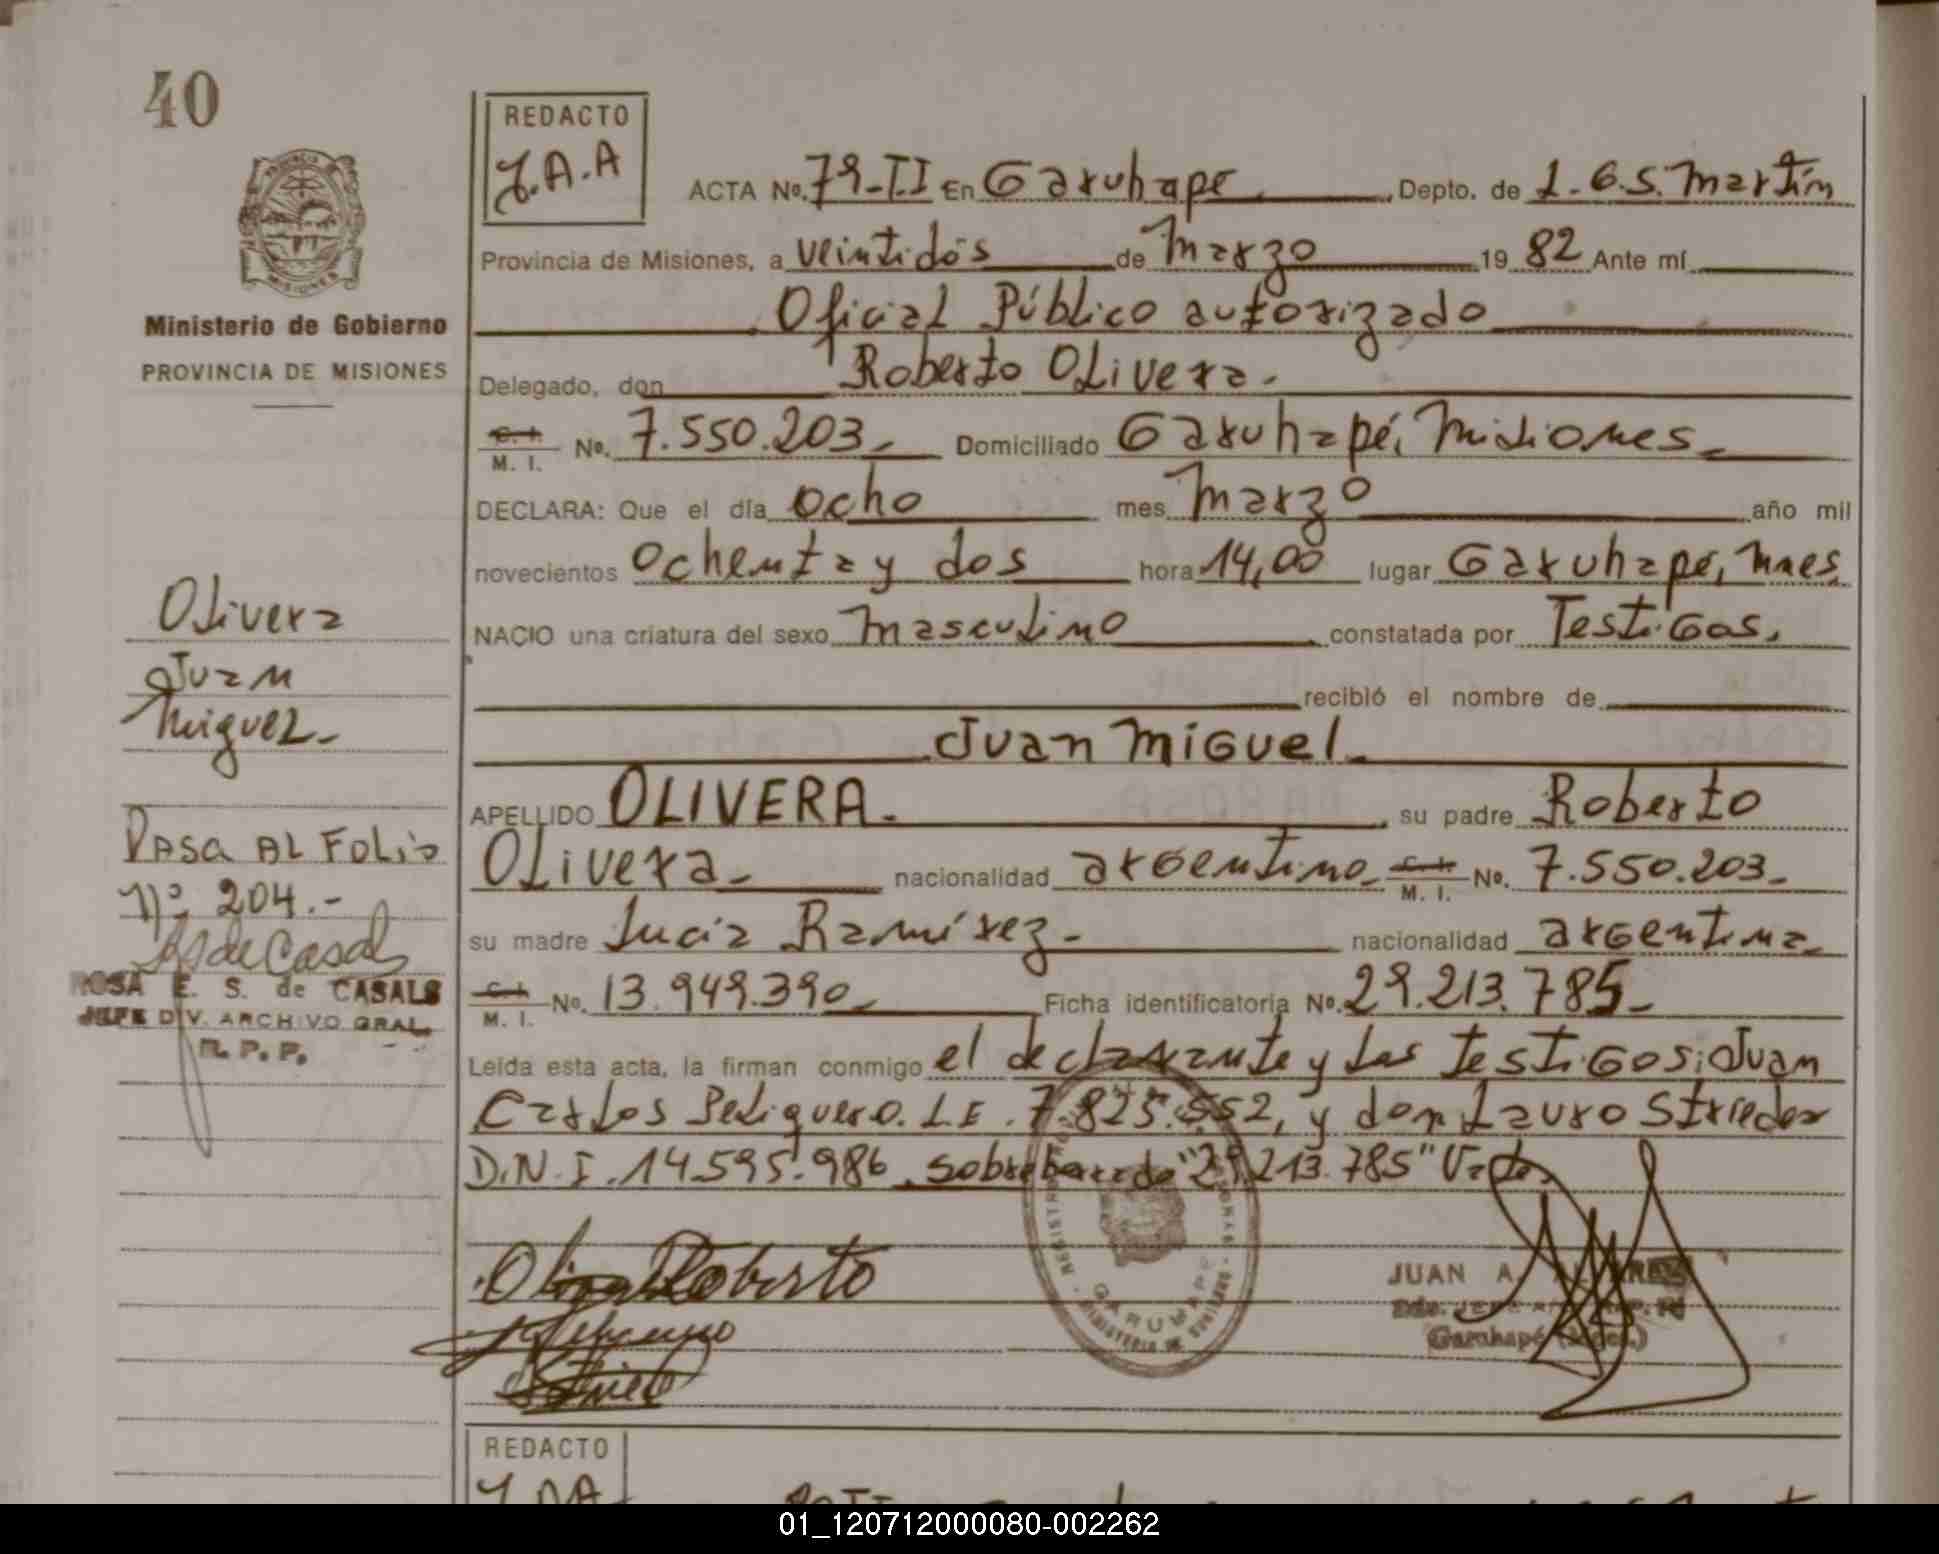 40
REDACTO
J.A.A
ACTA No. 79-II En Garuhape Depto. de L.G.S. Martín
Provincia de Misiones, a veintidós de Marzo 1982 Ante mí
Oficial Público autorizado
Delegado, don Roberto Olivera.
C. I. M. I. No. 7.550.203 Domiciliado Garuhapé, Misiones
DECLARA: Que el día ocho mes Marzo año mil
novecientos ochenta y dos hora 14,00 lugar Garuhapé, Mnes
NACIO una criatura del sexo masculino constatada por Testigos,
recibió el nombre de
Juan Miguel
APELLIDO OLIVERA. su padre Roberto
Olivera nacionalidad argentino C. I. M. I. No. 7.550.203
su madre Lucia Ramírez nacionalidad argentina
C. I. M. I. No. 13.949.390 Ficha identificatoria No. 29.213.785
Leída esta acta, la firman conmigo el declarante y los testigos: Juan
Carlos L.E. 7.825.552, y don Lauro Strieder
D.N.I. 14.595.986 sobreborrado "29.213.785" Vale
Olivera Roberto
JUAN A. ALVAREZ
Garuhapé (Mnes.)
GARUHAPE
PROVINCIA
MISIONES
Ministerio de Gobierno
PROVINCIA DE MISIONES
Olivera
Juan
Miguel
PASA AL FOLIO
Nº 204.-
RS de Casals
ROSA E. S. de CASALS
JEFE DIV. ARCHIVO GRAL.
R. P. P.
REDACTO
J.AA
01_120712000080-002262